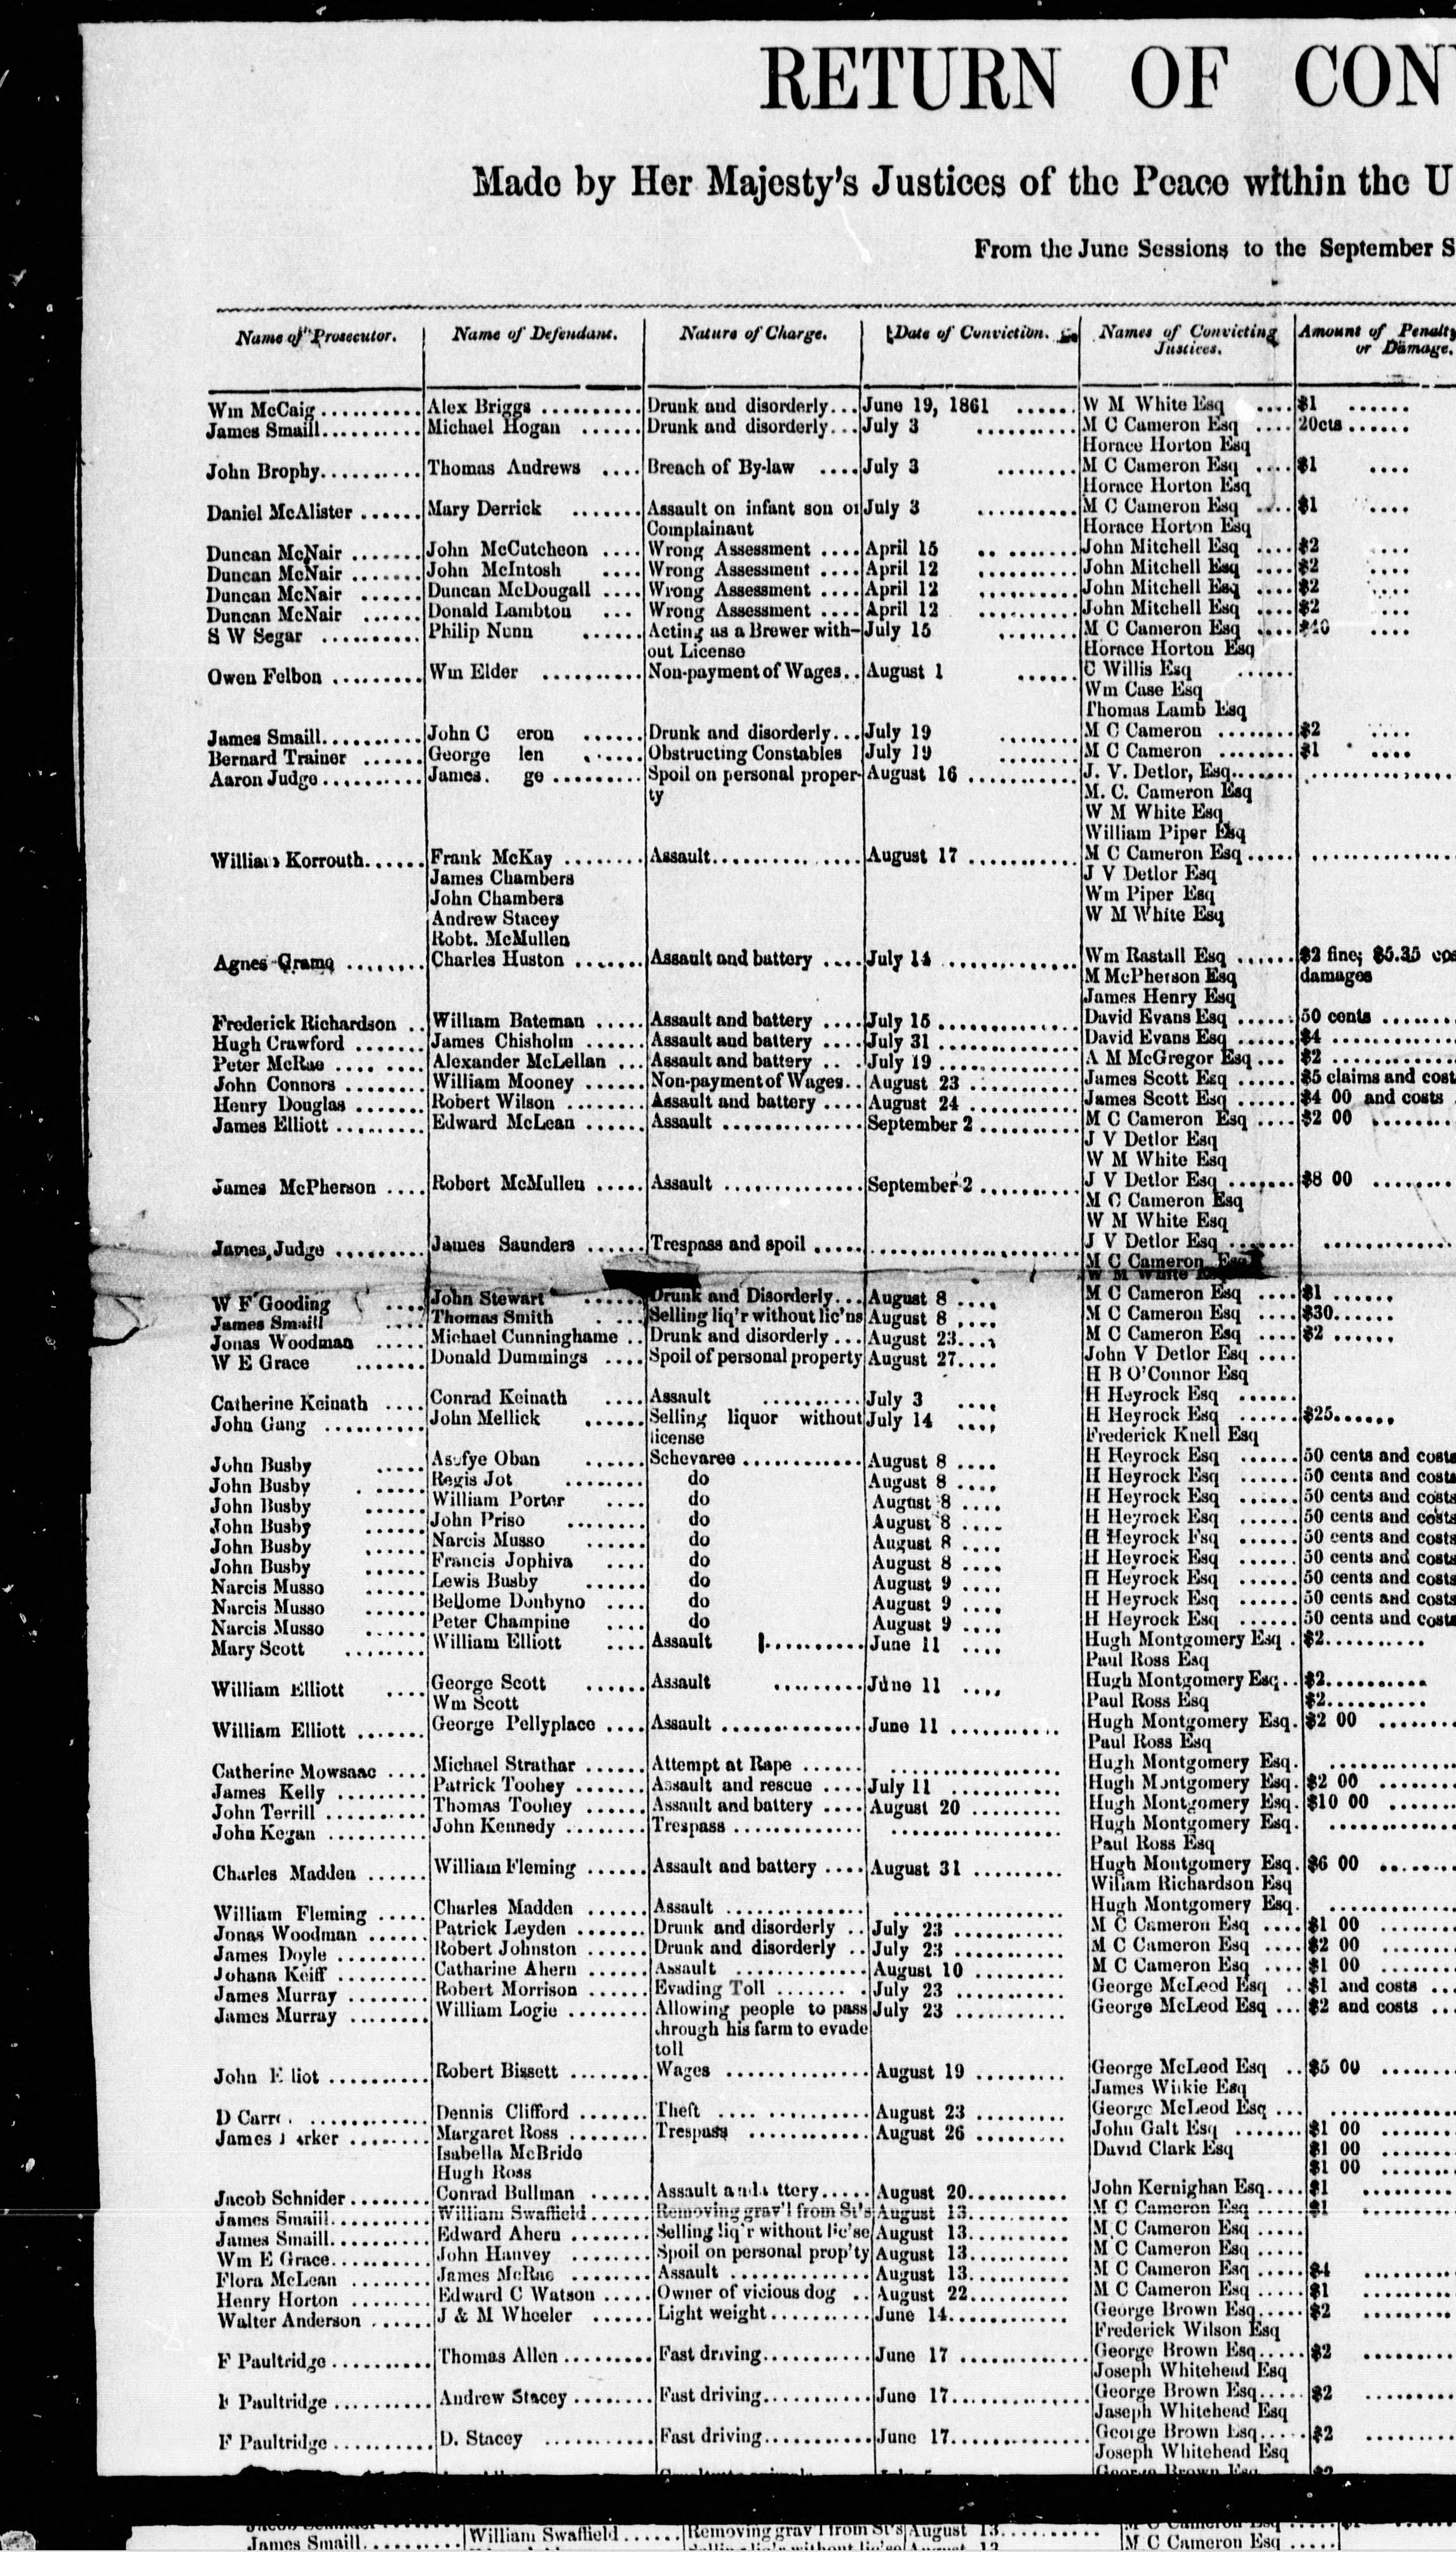 RETURN OF CON
Made by Her Majesty's Justices of the Peace within the U
From the June Sessions to the September S
Name of Prosecutor. Name of Defendant. Nature of Charge. Date of Conviction. Names of Convicting Amount of Penalty
Justices. or Damage.
Wm McCaig.......... Alex Briggs .......... Drunk and disorderly... June 19, 1861 ...... W M White Esq .... $1 ......
James Smaill.......... Michael Hogan ...... Drunk and disorderly... July 3 .......... M C Cameron Esq .... 20cts ......
Horace Horton Esq
John Brophy.......... Thomas Andrews .... Breach of By-law .... July 3 ........ M C Cameron Esq .... $1 ....
Horace Horton Esq
Daniel McAlister ...... Mary Derrick ....... Assault on infant son of July 3 .......... M C Cameron Esq .... $1 ....
Complainant Horace Horton Esq
Duncan McNair ....... John McCutcheon .... Wrong Assessment .... April 15 .. ....... John Mitchell Esq .... $2 ....
Duncan McNair ...... John McIntosh .... Wrong Assessment .... April 12 .......... John Mitchell Esq .... $2 ....
Duncan McNair ...... Duncan McDougall .... Wrong Assessment .... April 12 .......... John Mitchell Esq .... $2 ....
Duncan McNair ...... Donald Lambton ... Wrong Assessment .... April 12 .......... John Mitchell Esq .... $2 ....
S W Segar .......... Philip Nunn ...... Acting as a Brewer with- July 15 ........ M C Cameron Esq ....  ....
out License Horace Horton Esq
Owen Felbon ......... Wm Elder .......... Non-payment of Wages.. August 1 ...... C Willis Esq ......
Wm Case Esq
Thomas Lamb Esq
James Smaill.......... John C eron ...... Drunk and disorderly... July 19 ........ M C Cameron ........ $2 ....
Bernard Trainer ...... George len ...... Obstructing Constables July 19 ........ M C Cameron ........ $1 ....
Aaron Judge.......... James. ge ......... Spoil on personal proper- August 16 ........... J. V. Detlor, Esq....... ..............
ty M. C. Cameron Esq
W M White Esq
William Piper Esq
William Korrouth...... Frank McKay ........ Assault.............. August 17 ........... M C Cameron Esq..... ..............
James Chambers J V Detlor Esq
John Chambers Wm Piper Esq
Andrew Stacey W M White Esq
Robt. McMullen
Agnes Grame ........ Charles Huston ....... Assault and battery .... July 14 ............. Wm Rastall Esq ...... $2 fine; $5.35 cos
M McPherson Esq damages
James Henry Esq
Frederick Richardson .. William Bateman ..... Assault and battery .... July 15 .............. David Evans Esq ...... 50 cents ........
Hugh Crawford ....... James Chisholm ...... Assault and battery .... July 31 .............. David Evans Esq ...... $4 ............
Peter McRae .... .... Alexander McLellan ... Assault and battery .. . July 19 .............. A M McGregor Esq ... $2 ............
John Connors ........ William Mooney ...... Non-payment of Wages.. August 23 ........... James Scott Esq ...... $5 claims and cost
Henry Douglas ....... Robert Wilson ........ Assault and battery .... August 24 ........... James Scott Esq ...... $4 00 and costs .
James Elliott ......... Edward McLean ...... Assault .............. September 2 .......... M C Cameron Esq .... $2 00 ........
J V Detlor Esq
W M White Esq
James McPherson .... Robert McMullen ..... Assault .............. September 2 .......... J V Detlor Esq ....... $8 00 ........
M C Cameron Esq
W M White Esq
James Judge ......... James Saunders ...... Trespass and spoil ..... ..................... J V Detlor Esq ....... .............
M C Cameron Esq
W M White Esq
W F Gooding .... John Stewart ...... Drunk and Disorderly... August 8 .... M C Cameron Esq .... $1 ......
James Smaill .... Thomas Smith .... Selling liq'r without lic'ns August 8 .... M C Cameron Esq .... $30......
Jonas Woodman .... Michael Cunninghame .. Drunk and disorderly ... August 23.... M C Cameron Esq .... $2 ......
W E Grace ....... Donald Dummings .... Spoil of personal property August 27.... John V Detlor Esq ....
H B O'Connor Esq
Catherine Keinath .... Conrad Keinath .... Assault .......... July 3 .... H Heyrock Esq ......
John Gang .......... John Mellick ...... Selling liquor without July 14 .... H Heyrock Esq ...... $25......
license Frederick Knell Esq
John Busby ..... Oban ...... Schevaree ........... August 8 .... H Heyrock Esq ...... 50 cents and costs
John Busby . ..... Regis Jot ........ do August 8 .... H Heyrock Esq ...... 50 cents and costs
John Busby ...... William Porter .... do August 8 .... H Heyrock Esq ...... 50 cents and costs
John Busby ...... John Priso ........ do August 8 .... H Heyrock Esq ...... 50 cents and costs
John Busby ...... Narcis Musso ...... do August 8 .... H Heyrock Esq ...... 50 cents and costs
John Busby ...... Francis Jophiva .... do August 8 .... H Heyrock Esq ...... 50 cents and costs
Narcis Musso ...... Lewis Busby ...... do August 9 .... H Heyrock Esq ...... 50 cents and costs
Narcis Musso ...... Bellome Donhyno .... do August 9 .... H Heyrock Esq ...... 50 cents and costs
Narcis Musso ...... Peter Champine .... do August 9 .... H Heyrock Esq ...... 50 cents and costs
Mary Scott ........ William Elliott .... Assault .......... June 11 .... Hugh Montgomery Esq . $2..........
Paul Ross Esq
William Elliott .... George Scott ...... Assault ......... June 11 .... Hugh Montgomery Esq.. $2..........
Wm Scott Paul Ross Esq $2..........
William Elliott ....... George Pellyplace .... Assault .............. June 11 ........... Hugh Montgomery Esq. $2 00 ........
Paul Ross Esq
Catherine Mowsaac .... Michael Strathar ...... Attempt at Rape ...... ................. Hugh Montgomery Esq. .............
James Kelly ......... Patrick Toohey ....... Assault and rescue .... July 11 ........... Hugh Montgomery Esq. $2 00 ........
John Terrill .......... Thomas Toohey ...... Assault and battery .... August 20 ......... Hugh Montgomery Esq. $10 00 .......
John Kegan .......... John Kennedy ........ Trespass ............. ................. Hugh Montgomery Esq. .............
Paul Ross Esq
Charles Madden ...... William Fleming ...... Assault and battery .... August 31 ......... Hugh Montgomery Esq. $6 00 ........
William Richardson Esq
William Fleming ..... Charles Madden ...... Assault .............. ................. Hugh Montgomery Esq. .............
Jonas Woodman ...... Patrick Leyden ....... Drunk and disorderly .. July 23 ........... M C Cameron Esq .... $1 00 ........
James Doyle ......... Robert Johnston ...... Drunk and disorderly .. July 23 ........... M C Cameron Esq .... $2 00 ........
Johana Keiff ......... Catharine Ahern ...... Assault ............. August 10 ......... M C Cameron Esq .... $1 00 ........
James Murray ........ Robert Morrison ...... Evading Toll ........ July 23 ........... George McLeod Esq .. $1 and costs ...
James Murray ........ William Logie ........ Allowing people to pass July 23 ........... George McLeod Esq ... $2 and costs ...
through his farm to evade
toll
John E liot .......... Robert Bissett ........ Wages .............. August 19 ......... George McLeod Esq .. $5 00 .......
James Wilkie Esq
D Carr ............ Dennis Clifford ....... Theft .... .......... August 23 ......... George McLeod Esq ... .............
James arker ........ Margaret Ross ........ Trespass ............ August 26 ......... John Galt Esq ....... $1 00 ........
Isabella McBride David Clark Esq $1 00 ........
Hugh Ross $1 00 .......
Jacob Schnider........ Conrad Bullman ...... Assault and ttery..... August 20.......... John Kernighan Esq.... $1 .........
James Smaill.......... William Swaffield...... Removing grav'l from St's August 13.......... M C Cameron Esq .... $1 .........
James Smaill.......... Edward Ahern ........ Selling liq'r without lic'se August 13.......... M C Cameron Esq .....
Wm E Grace.......... John Hanvey ........ Spoil on personal prop'ty August 13.......... M C Cameron Esq .....
Flora McLean ........ James McRae ........ Assault ............. August 13.......... M C Cameron Esq ..... $4 .........
Henry Horton ........ Edward C Watson ..... Owner of vicious dog .. August 22.......... M C Cameron Esq ..... $1 .........
Walter Anderson ...... J & M Wheeler ...... Light weight.......... June 14............ George Brown Esq..... $2 .........
Frederick Wilson Esq
F Paultridge.......... Thomas Allen ......... Fast driving........... June 17 ............. George Brown Esq..... $2 .........
Joseph Whitehead Esq
F Paultridge .......... Andrew Stacey ........ Fast driving........... June 17.............. George Brown Esq..... $2 .........
Jaseph Whitehead Esq
F Paultridge .......... D. Stacey ........... Fast driving........... June 17.............. George Brown Esq..... $2 .........
Joseph Whitehead Esq
George Brown Esq $2
James Smaill.......... William Swaffield...... Removing grav'l from St's August 13..........
M C Cameron Esq .....